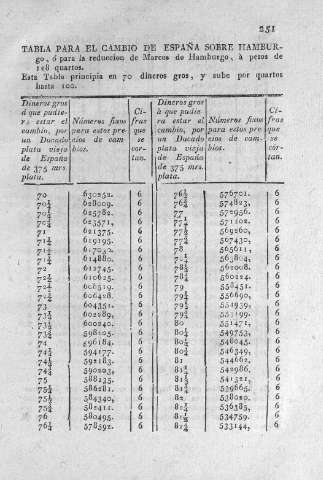 251
TABLA PARA EL CAMBIO DE ESPAÑA SOBRE HAMBUR-
go, ó para la reduccion de Marcos de Hamburgo, á pesos de
128 quartos.
Esta Tabla principia en 70 dineros gros, y sube por quartos
hasta 100.
Dineros gros á que pudiera estar el cambio, por un Ducado plata vieja de España de 375 mrs. plata. Números fixos para estos precios de cambios. Cifras que se cortan. Dineros gros á que pudiera estar el cambio, por un Ducado plata vieja de España de 375 mrs. plata. Números fixos para estos precios de cambios. Cifras que se cortan.
70 630252. 6 76½ 576701. 6
70¼ 628009. 6 76¾ 574823, 6
70½ 625782. 6 77 572956. 6
70¾ 623571, 6 77¼ 571102. 6
71 621375. 6 77½ 569260, 6
71¼ 619195. 6 77¾ 567430, 6
71½ 617030. 6 78 565611, 6
71¾ 614880. 6 78¼ 563804, 6
72 612745. 6 78½ 562008. 6
72¼ 610625. 6 78¾ 560224. 6
72½ 608519. 6 79 558451. 6
72¾ 606428. 6 79¼ 556690, 6
73 604351. 6 79½ 554939, 6
73¼ 602289. 6 79¾ 553199. 6
73½ 600240. 6 80 551471, 6
73¾ 598205. 6 80¼ 549753, 6
74 596184. 6 80½ 548045. 6
74¼ 594177. 6 80¾ 546349, 6
74½ 592183. 6 81 544662, 6
74¾ 590203, 6 81¼ 542986, 6
75 588235. 6 81½ 541321, 6
75¼ 586281. 6 81¾ 539665. 6
75½ 584340, 6 82 538020. 6
75¾ 582412. 6 82¼ 536385, 6
76 580495. 6 82½ 534759. 6
76¼ 578592. 6 82¾ 533144, 6